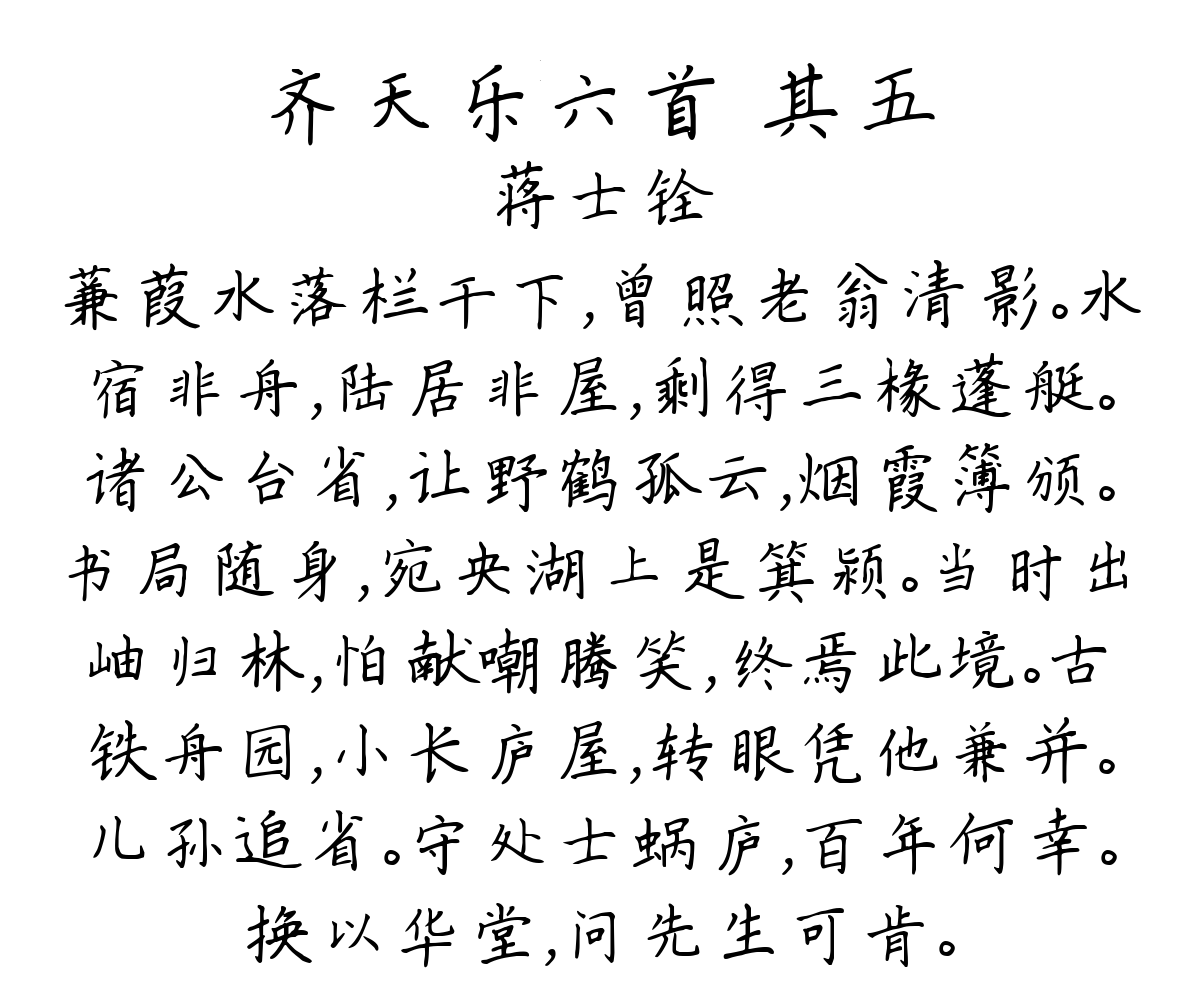 齐天乐六首 其五
蒋士铨
蒹葭水落栏干下,曾照老翁清影。水
宿非舟,陆居非屋,剩得三椽蓬艇。
诸公台省,让野鹤孤云,烟霞簿颁。
书局随身,宛央湖上是箕颍。当时出
岫归林,怕献嘲腾笑,终焉此境。古
铁舟园,小长庐屋,转眼凭他兼并。
儿孙追省。守处士蜗庐,百年何幸。
换以华堂,问先生可肯。